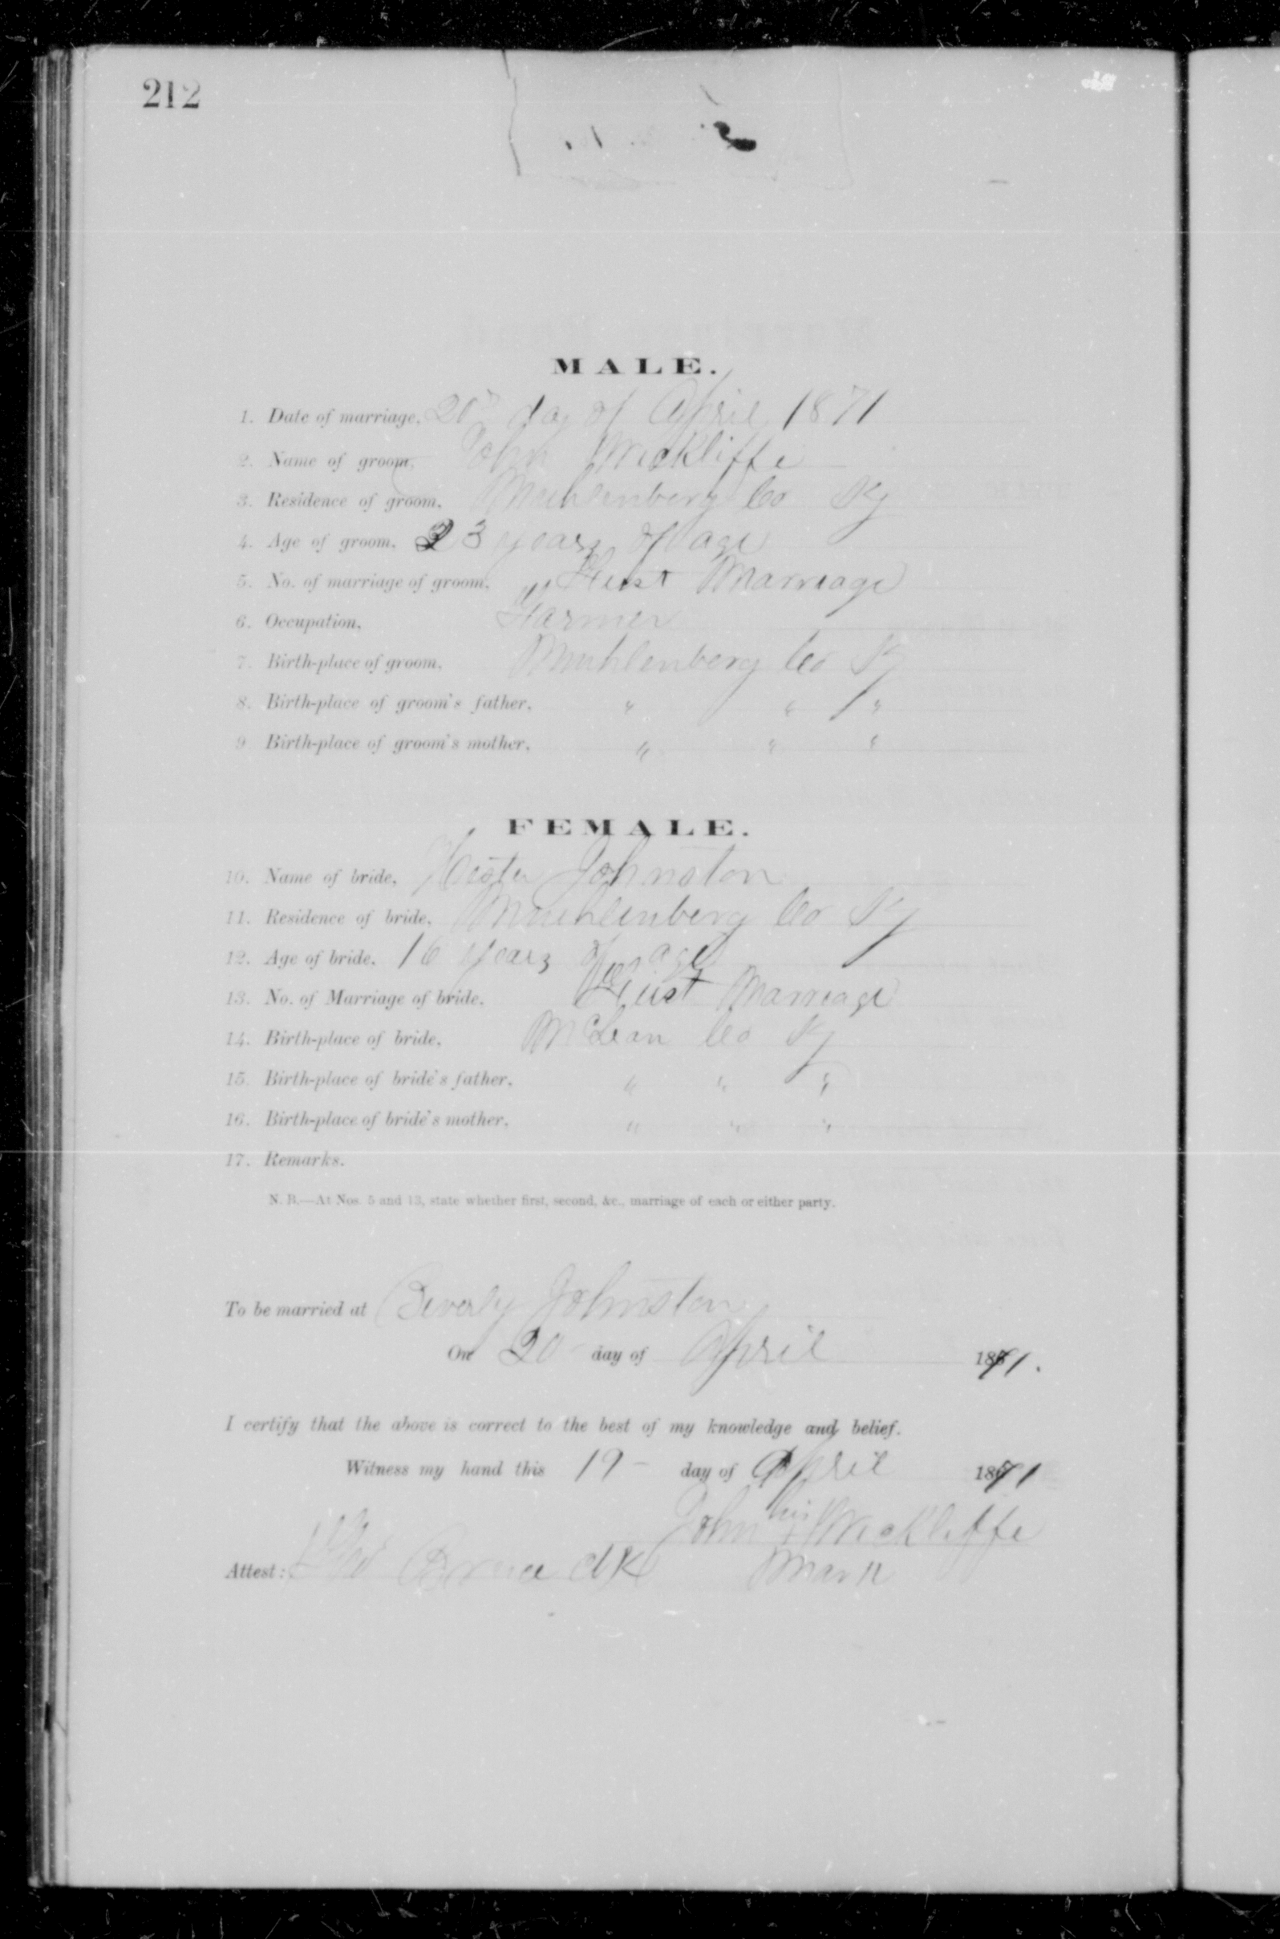 212
MALE.
1. Date of marriage, 20th day of April 1871
2. Name of groom, John Wickliffe
3. Residence of groom, Muhlenberg Co Ky
4. Age of groom, 23 years of age
5. No. of marriage of groom, First Marriage
6. Occupation, Farmer
7. Birth-place of groom, Muhlenberg Co Ky
8. Birth-place of groom's father, " " "
9 Birth-place of groom's mother, " " "
FEMALE.
10. Name of bride, Hester Johnston
11. Residence of bride, Muhlenberg Co Ky
12. Age of bride, 16 years of age
13. No. of Marriage of bride, First Marriage
14. Birth-place of bride, McLean Co Ky
15. Birth-place of bride's father, " " "
16. Birth-place of bride's mother, " " "
17. Remarks.
N. B.—At Nos. 5 and 13, state whether first, second, &c., marriage of each or either party.
To be married at Beverly Johnston
On 20 day of April 1871.
I certify that the above is correct to the best of my knowledge and belief.
Witness my hand this 19 - day of April 1871
John his + Wickliffe
Attest: Bruce clk Mark